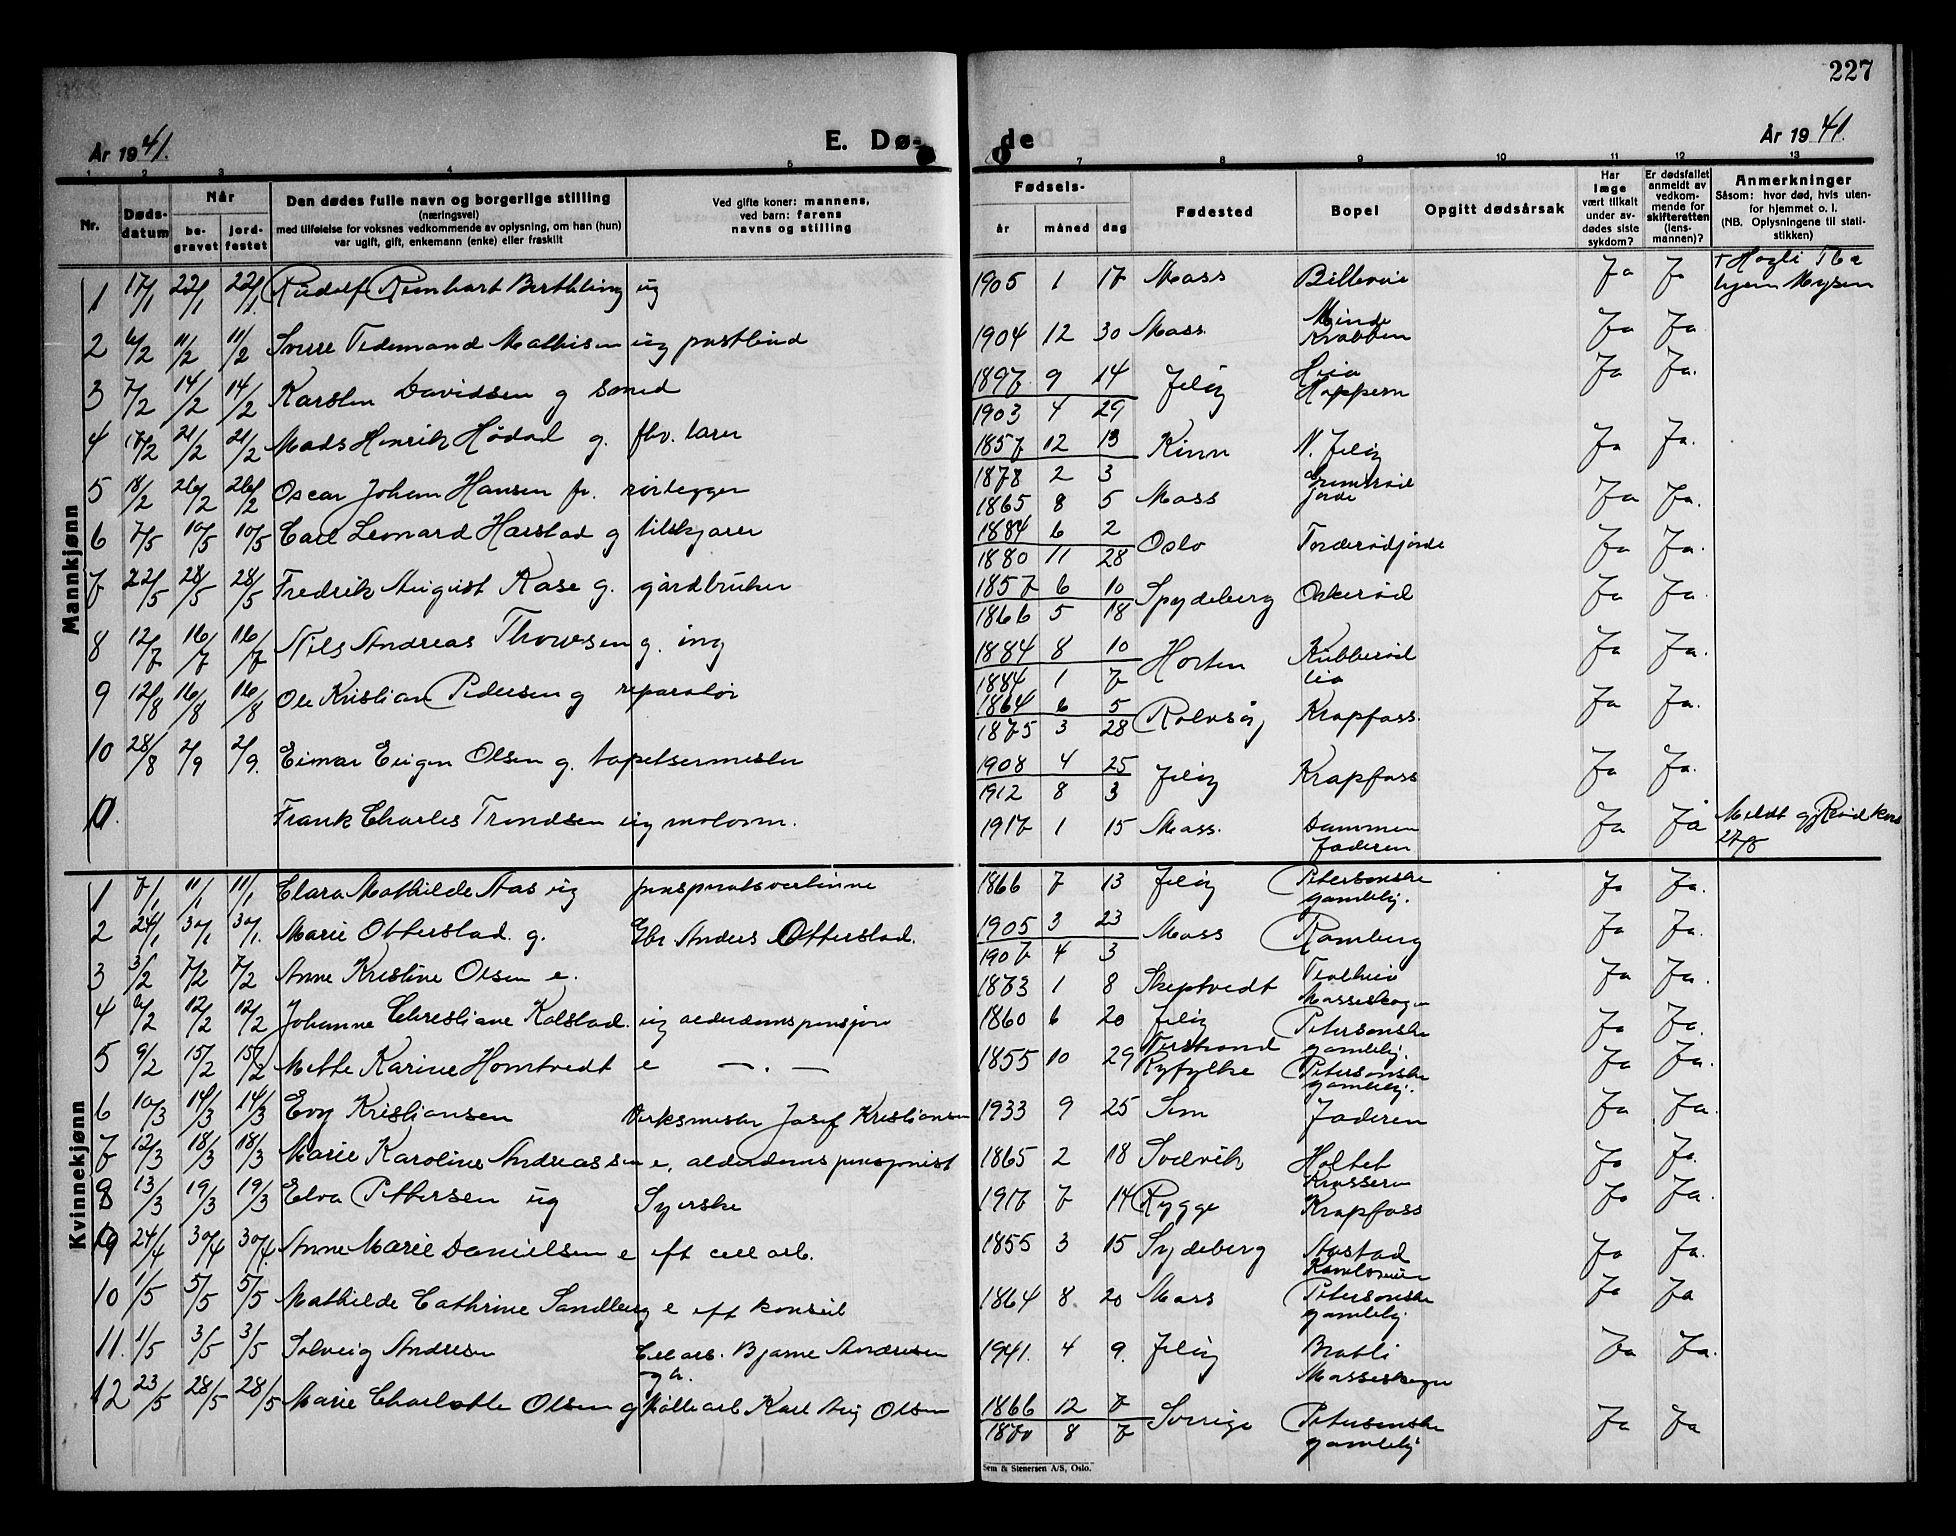 227
År 1941.
E. Dø-
de
År 1941.
1 2 3 4 5 7 8 9 10 11 12 13
Nr.
Dødsdatum
Når
begravet
jordfestet
Den dødes fulle navn og borgerlige stilling
(næringsvei)
med tilføielse for voksnes vedkommende av oplysning, om han (hun)
var ugift, gift, enkemann (enke) eller fraskilt
Ved gifte koner: mannens,
ved barn: farens
navns og stilling
Fødsels-
år måned dag
Fødested
Bopel
Opgitt dødsårsak
Har læge vært tilkalt under avdødes siste sykdom?
Er dødsfallet anmeldt av vedkommende for skifteretten (lensmannen)?
Anmerkninger
Såsom: hvor død, hvis utenfor hjemmet o. l.
(NB. Oplysningene til statistikken)
Mannkjønn
1 17/1 22/1 22/1. Rudolf Reinhart Berthling ug 1905 1 17 Moss Ja Ja hjem Mysen
2 6/2 11/2 11/2 Sverre Tidemand Mathisen ug postbud 1904 12 30 Moss Krabben Ja Ja
3 7/2 14/2 14/2 Karsten Davidsen g smed 1897 9 14 1903 4 29 Jeløy Hoppern Ja Ja.
4 17/2 21/2 21/2 Mads Henrik Hødal g. fhv. lærer 1857 12 13 1878 2 3 Kinn N. Jeløy Ja Ja.
5 18/2 26/2 26/2 Oscar Johan Hansen fr. rørlegger 1865 8 5 Moss Grimsrød jorde Ja Ja.
6 7/5 10/5 10/5 Carl Leonard Harstad g tilskjærer 1884 6 2 1880 11 28 Oslo Torderødjorde Ja Ja.
7 22/5 28/5 28/5 Fredrik August Kase g. gårdbruker 1857 6 10 1866 5 18 Spydeberg Orkerød Ja Ja.
8 12/7 16/7 16/7 Nils Andreas Thowsen g. ing 1884 8 10 1884 1 7 Horten Kubberød lia Ja Ja.
9 12/8 16/8 16/8 Ole Kristian Pedersen g reparatør 1864 6 5 1875 3 28 Rolvsøy Krapfoss. Ja Ja.
10 28/8 2/9 2/9. Eimar Eugen Olsen g. tapetsermester 1908 4 25 1912 8 3 Jeløy Krapfoss Ja Ja.
Frank Charles Trondsen ug matorm. 1917 1 15 Moss. Dammen Jaderen Ja Ja Meldt gj Rød kors 27/8
Kvinnekjønn
1 7/1 11/1 11/1 Clara Mathilde Aas ug pensjonatsvertinne 1866 7 13 Jeløy Petersonske gamlehj. Ja Ja.
2 24/1 30/1 30/1. Marie Otterstad. g. Gbr Anders Otterstad. 1905 3 23 1907 4 3 Moss Ramberg Ja Ja.
3 3/2 7/2 7/2 Anne Kristine Olsen e. 1873 1 8 Skiptvedt Mosseskogen Ja Ja.
4 6/2 12/2 12/2 Johanne Christiane Kolstad. ug alderdomspensjon 1860 6 20 Jeløy Petersonske gamlehj. Ja Ja.
5 9/2 15/2 15/2 Mette Karine Homtvedt e — . — 1855 10 29 Ryfylke Petersonske gamlehj. Ja Ja.
6 10/3 14/3 14/3 Evy Kristiansen Verksmester Josef Kristiansen 1933 9 25 Sem Jaderen Ja Ja.
7 12/3 18/3 18/3 Marie Karoline Andreassen e. alderdomspensjonist 1865 2 18 Sødvik Holtet Ja Ja.
8 13/3 19/3 19/3 Elva Pettersen ug Syerske 1917 7 14 Rygge Krapfoss Ja Ja.
9 24/4 30/4 30/4. Anne Marie Danielsen e eft cell arb. 1855 3 15 Sydeberg Åstad Ja Ja.
10 1/5 5/5 5/5 Mathilde Cathrine Sandberg e eft konsul 1864 8. 20 Moss Petersonske gamlehj Ja Ja
11. 1/5 3/5 3/5 Solveig Andresen Cell arb. Bjarne Andresen og h. 1941. 4 9. Jeløy Bratli Mosseskogen Ja Ja.
12 23/5 28/5 28/5 Marie Charlotte Olsen g Møllearb Karl Aug Olsen 1866 12 7 1870 8 7 Sverige Petersonske gamlehj Ja Ja
Sem & Stenersen A/S, Oslo.